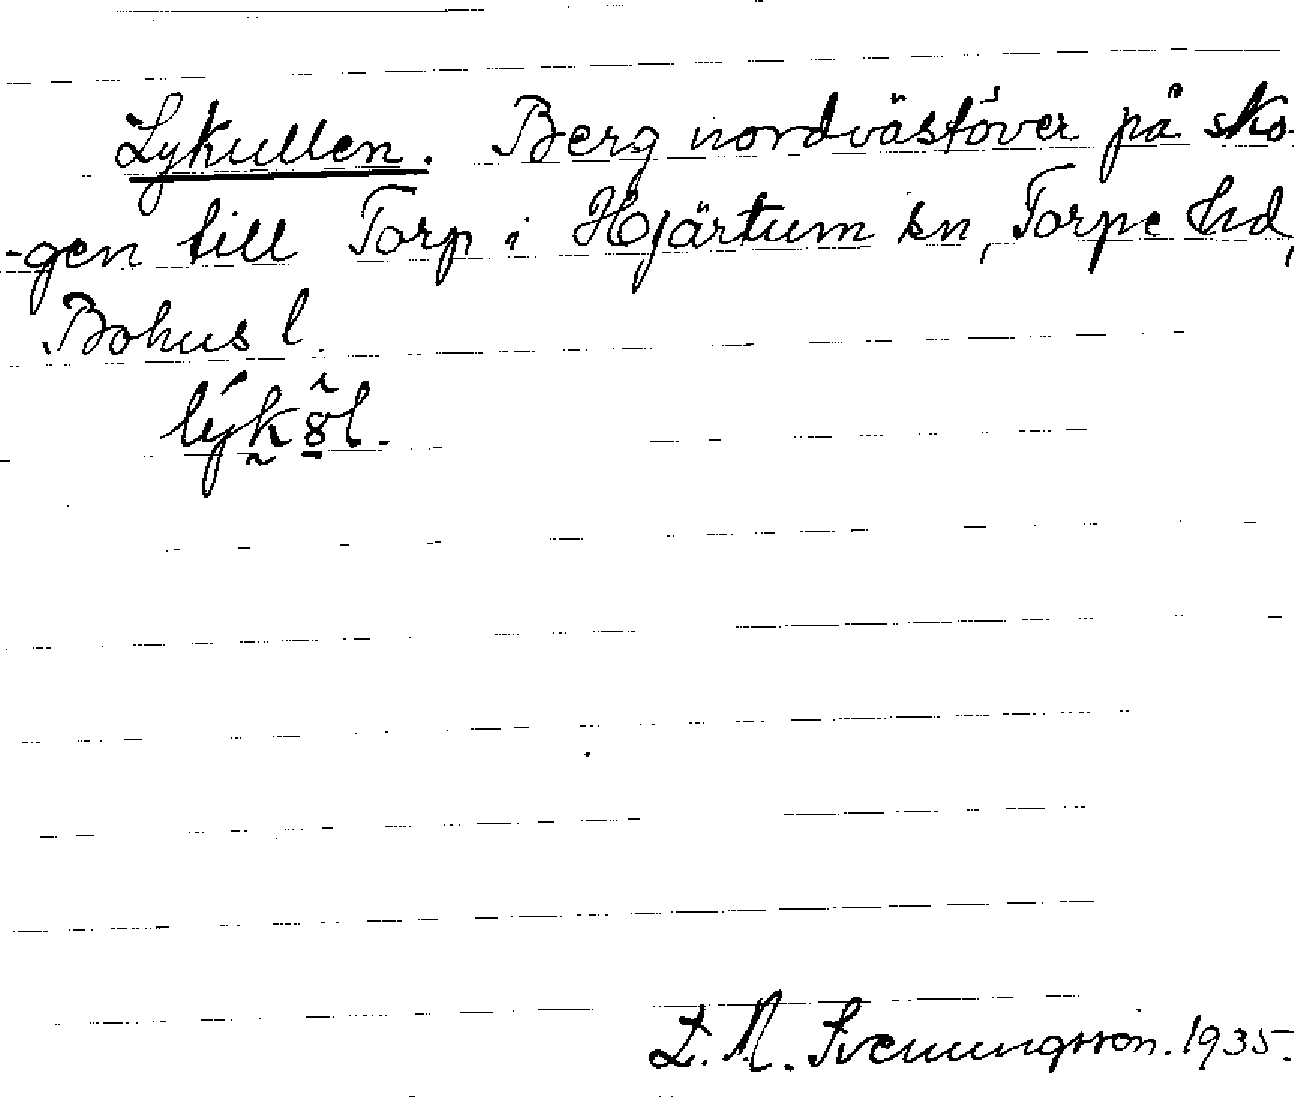 Lykullen. Berg nordvästöver på sko-
-gen till Torp i Hjärtum sn, Torpe hd,
Bohus l.
L. M. Svenungsson. 1935.